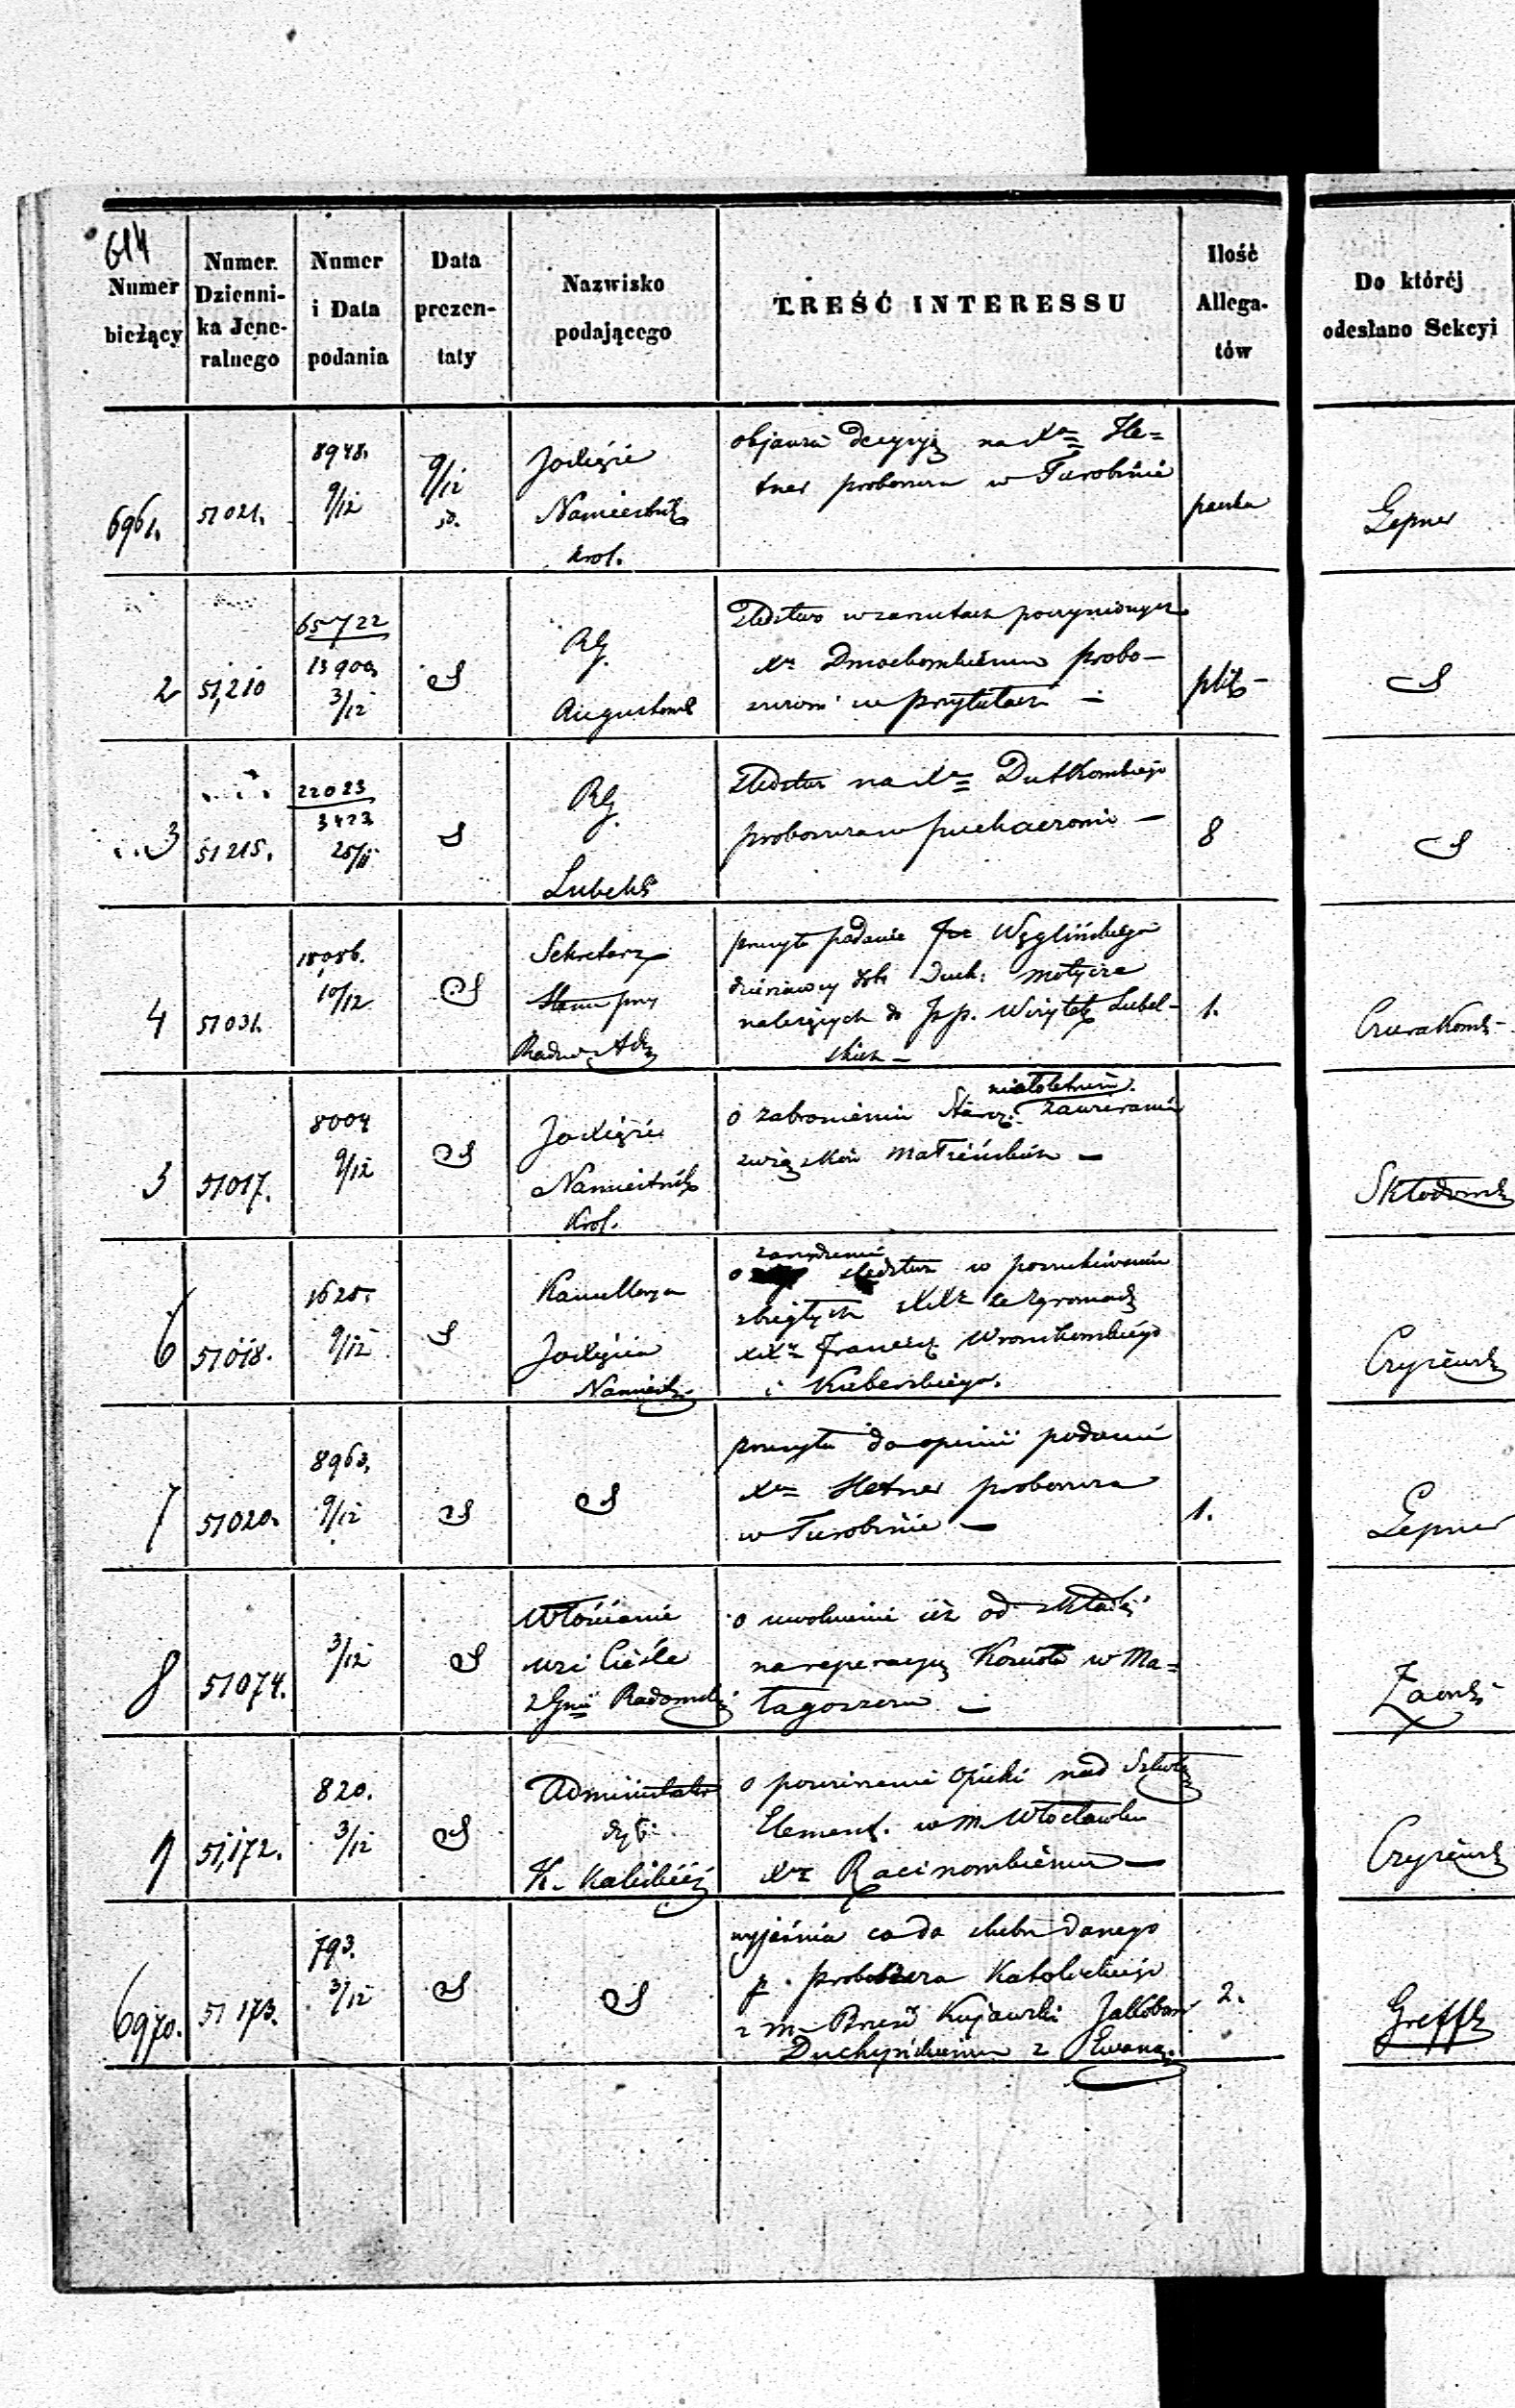 614
Numer bieżący
Numer Dziennika Jeneralnego
Numer i Data podania
Data prezentaty
Nazwisko podającego
TREŚĆ INTERESSU
Ilość Allegatów
Do któréj odesłano Sekcyi
6961. 51021. 8948. 9/12 9/12
JO Xięcie
Namiestnik
Król.
objawia decyzyą na Xa Het=
tner proboszcza w Turobinie
paczka
Lepner
2 51,210 65722 13900 3/12
RG
Augustows
Śledztwo w zarzutach poczynionych
Xu Dmochowskiemu probo-
szczowi w Przytułach -
plik -
3 51215. 22023 3423 25/11
RG
Lubels
Śledztwo na Xa Dutkowskiego
proboszcza w Puchaczowie -
8
4 51031. 18086. 10/12
Sekretarz
Stanu przy
Radzie Adm
przesyła podanie Węglińskiego
dzierżawcy dóbr Duch: Motycze
należących do PP. Wizytek Lubel-
skich -
1.
Czurakows-
5 51017. 8004 9/12
JO Xięcie
Namiestnik
Król.
małoletnim
o zabronieniu Staroz. zawierania
związków małżeńskich -
Skłodows
6 51018. 1625. 9/12
Kancellarya
JO Xięcia
Namiest.
zarządzenie
o śledztwa w poszukiwaniu
zbiegłych XXy ze Zgromadz
XXy Francisz. Wronikowskiego
i Kuberskiego.
Czyżews
7 51020. 8963. 9/12
przesyła do opinii podanie
Xa Hetner proboszcza
w Turobinie -
1.
Lepner
8 51074. 3/12
Włościanie
wsi Cieśle
z Gnii Radomsk
o uwolnienie ich od składki
na reperacyą Kościoła w Ma=
łagoszczu -
9 51,172. 820. 3/12
Administator
dyec.
K. Kaliskiej
o poruczenie opieki nad Szkołą
Element. w m Włocławku
Xu Racinowskiemu -
Czyżews
6970. 51173. 793. 3/12
wyjaśnia co do ślubu danego
p. proboszcza Katolickiego
z m- Brześć Kujawski Jakóbowi
Duchyńskiemu z Ewang.
2.
Greffk